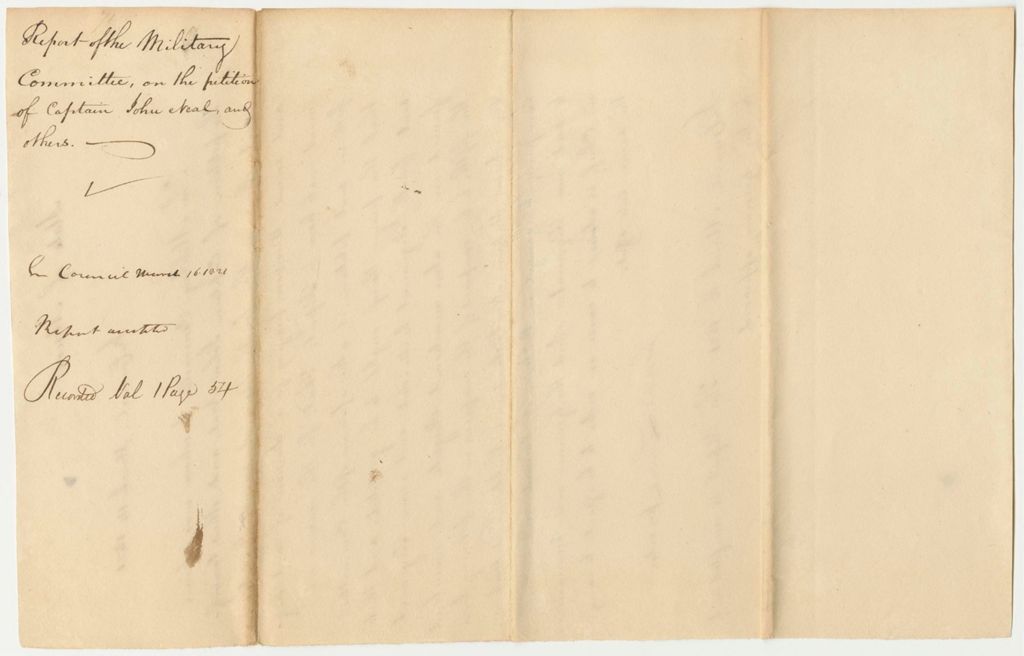 Report of the Military
Committee, on the petition
of Captain John Neal, and
others.
In Council March 16 1821
Report accepted
Recorded Vol 1 Page 54